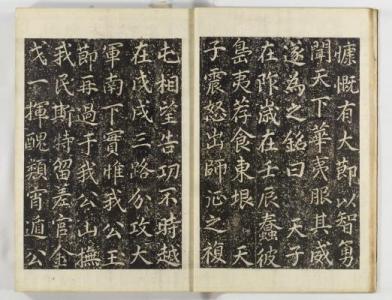 慷慨有大節以智勇
聞天下華夷服其威
遂為之銘曰 天子
在阼歲在壬辰蠢彼
島夷荐食東垠 天
子震怒出師征之復
屯相望告功不時越
在戊戌三路分攻大
軍南下實惟我公王
節再過于我公山撫
我民斯特留差官金
戈一揮醜類宵遁公